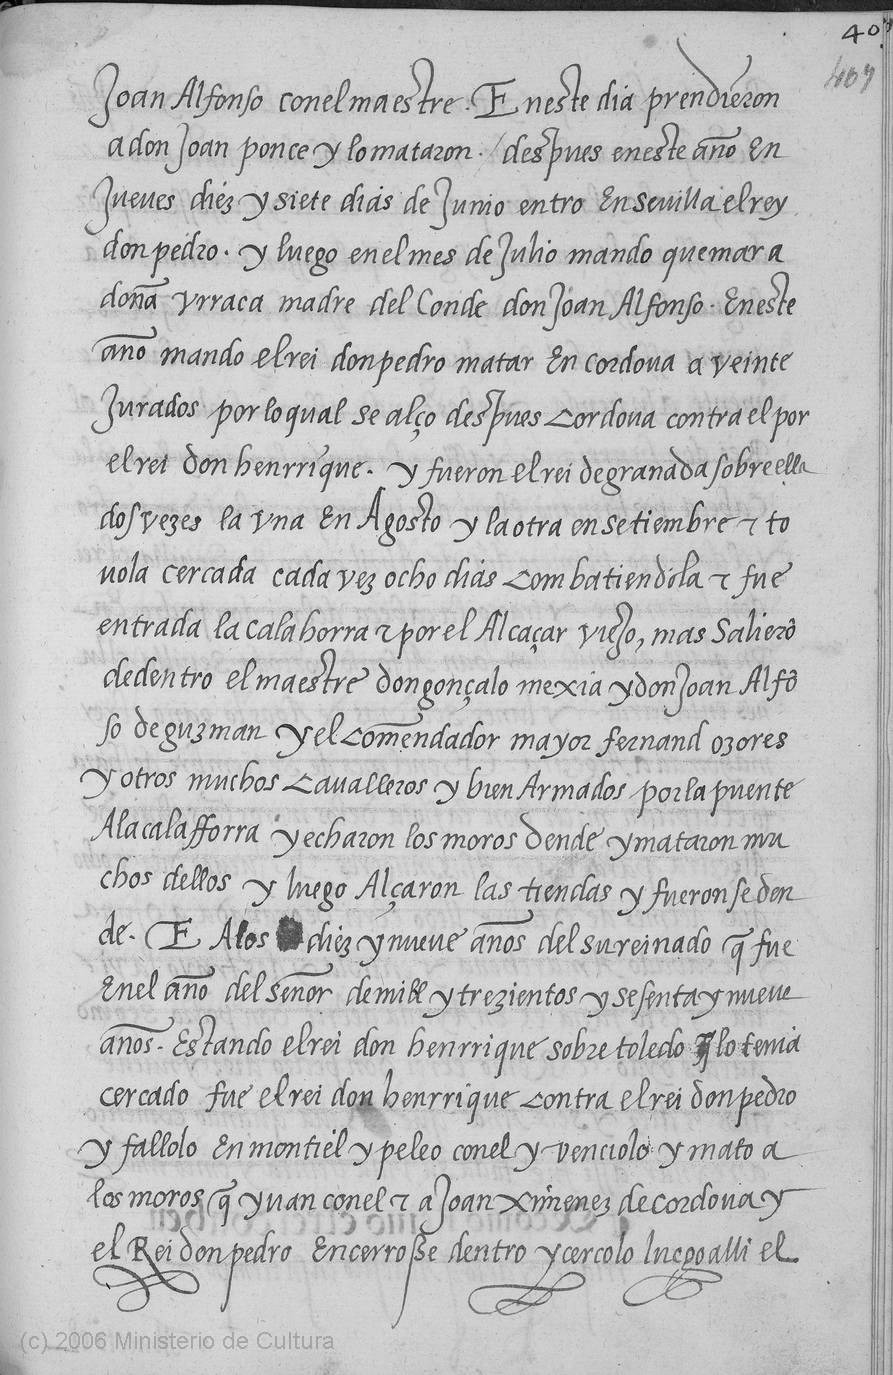 40
407
Joan Alfonso conel maestre. E neste dia prendieron
a don Joan ponce y lo mataron. / despues eneste año En
Jueves diez y siete dias de Junio entro En sevilla el rey
don pedro. y luego enel mes de Julio mando quemar a
doña Vrraca madre del Conde don Joan Alfonso. Eneste
año mando el rei don pedro matar En cordova a veinte
Jurados por lo qual se alço despues Cordova contra el por
el rei don henrrique. y fueron el rei de granada sobre ella
dos vezes la vna En Agosto y la otra en setiembre & to
vola cercada cada vez ocho dias Combatiendola & fue
entrada la calahorra & por el Alcaçar viejo, mas Salierō
dedentro el maestre don gonçalo mexia y don Joan Alfō
so de guzman y el Comendador mayor fernand ozores
y otros muchos Cavalleros y bien Armados por la puente
A la calafforra y echaron los moros dende y mataron mu
chos dellos y luego Alçaron las tiendas y fueronse den
de. E A los diez y nueve años del su reinado q̃ fue
Enel año del señor de mill y trezientos y sesenta y nueve
años. Estando el rei don henrrique sobre toledo q̃ lo tenia
cercado fue el rei don henrrique Contra el rei don pedro
y fallolo En montiel y peleo conel y venciolo y mato a
los moros q̃ yvan conel & a Joan Ximenez de cordova y
el Rei don pedro Encerrosse dentro y cercolo luego alli el
(c) 2006 Ministerio de Cultura